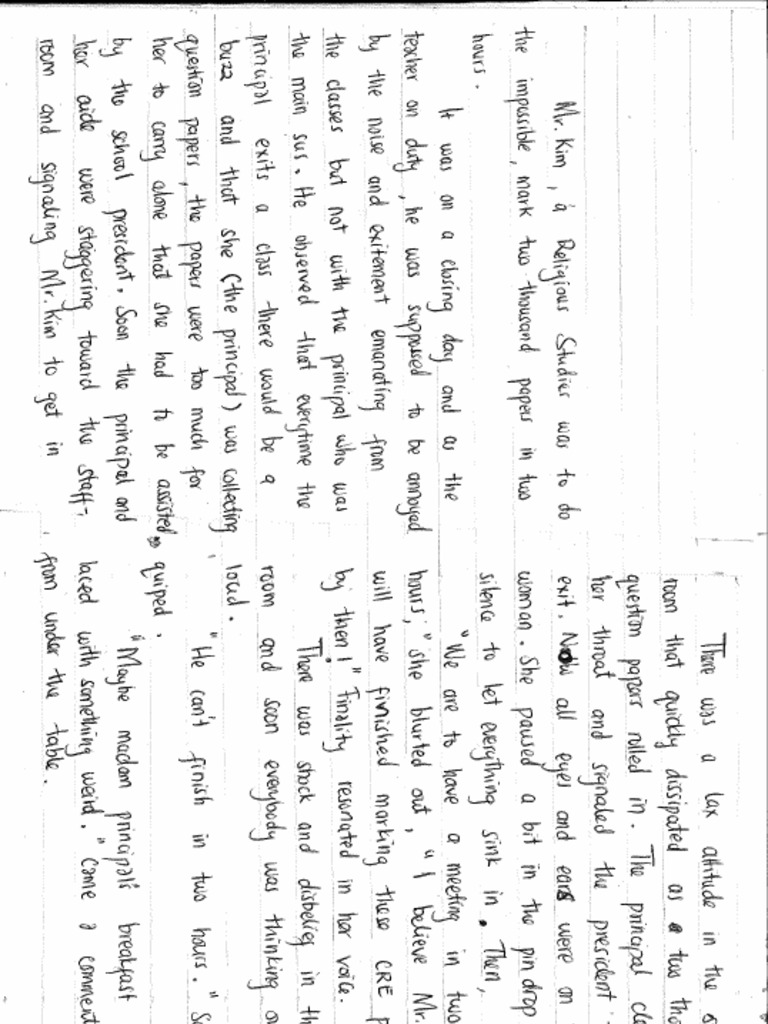 Mr. Kim, a Religious Studies was to do
the impossible, mark two thousand papers in two
hours.
It was on a closing day and as the
teacher on duty, he was supposed to be annoyed
by the noise and exitement emanating from
the classes but not with the principal who was
the main sus. He observed that everytime the
principal exits a class there would be a
buzz and that she (the principal) was collecting
question papers, the papers were too much for
her to carry alone that she had to be assisted
by the school president. Soon the principal and
her aide were staggering toward the staff-
room and signaling Mr. Kim to get in
There was a lax attitude in the s
room that quickly dissipated as two tho
question papers rolled in. The principal cle
her throat and signaled the president
exit. Now all eyes and ears were on
woman. She paused a bit in the pin drop
silence to let everything sink in. Then,
"We are to have a meeting in two
hours," she blurted out, "I believe Mr.
will have finished marking these CRE p
by then!" Finality resonated in her voice.
There was shock and disbelief in th
room and soon everybody was thinking o
loud.
"He can't finish in two hours." S
quiped.
"Maybe madam principal's breakfast
laced with something weird." Came a comment
from under the table.